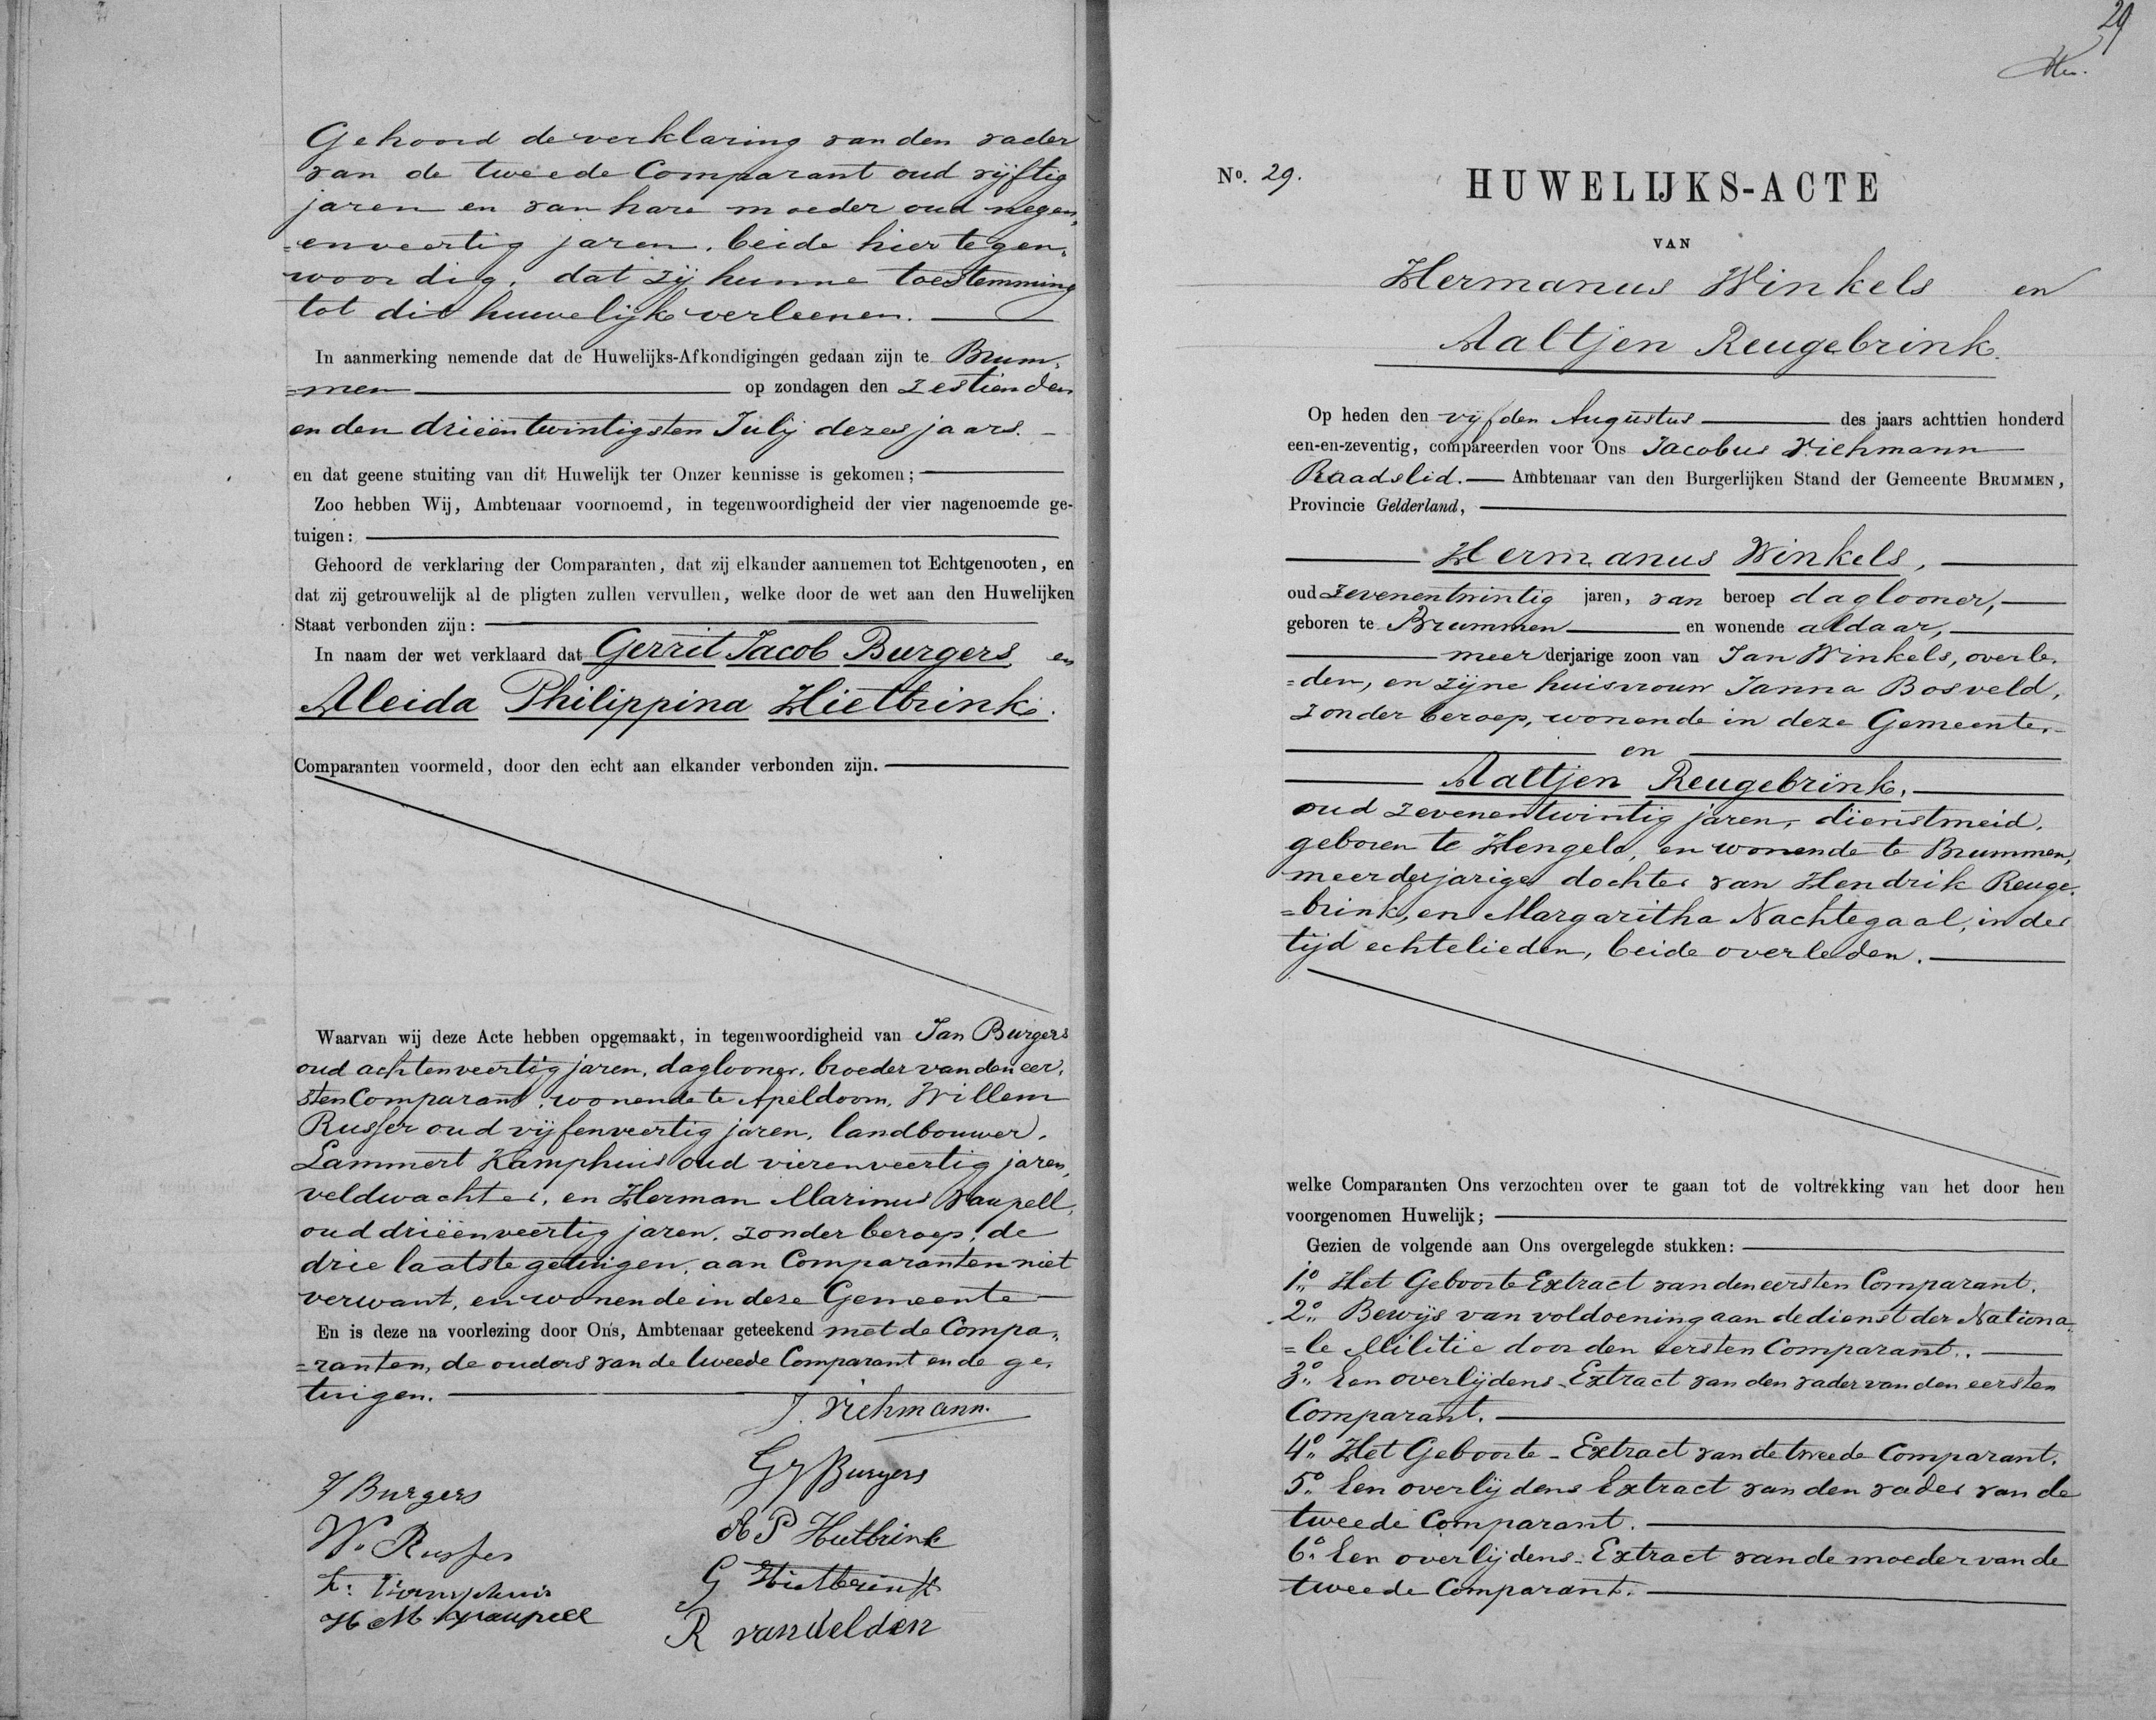 Gehoord de verklaring van den vader
van de tweede Comparant oud vijftig
jaren en van hare moeder oud negen„
=enveertig jaren, beide hier tegen„
woordig, dat zij hunne toestemming
tot dit huwelijk verleenen.
In aanmerking nemende dat de Huwelijks-Afkondigingen gedaan zijn te Brum„
=men op zondagen den zestienden
en den drieëntwintigsten Julij dezes jaars.
en dat geene stuiting van dit Huwelijk ter Onzer kennisse is gekomen;
Zoo hebben Wij, Ambtenaar voornoemd, in tegenwoordigheid der vier nagenoemde ge-
tuigen:
Gehoord de verklaring der Comparanten, dat zij elkander aannemen tot Echtgenooten, en
dat zij getrouwelijk al de pligten zullen vervullen, welke door de wet aan den Huwelijken
Staat verbonden zijn:
In naam der wet verklaard dat Gerrit Jacob Burgers en
Aleida Philippina Hietbrink.
Comparanten voormeld, door den echt aan elkander verbonden zijn.
Waarvan wij deze Acte hebben opgemaakt, in tegenwoordigheid van Jan Burgers
oud achtenveertig jaren, daglooner, broeder van den eer„
sten Comparant, wonende te Apeldoorn, Willem
Russer oud vijfenveertig jaren, landbouwer,
Lammert Kamphuis oud vierenveertig jaren,
veldwachter, en Herman Marinus Vaupell,
oud drieënveertig jaren, zonder beroep, de
drie laatste getuigen, aan Comparanten niet
verwant, en wonende in deze Gemeente
En is deze na voorlezing door Ons, Ambtenaar geteekend met de Compa„
=ranten, de ouders van de tweede Comparant en de ge„
tuigen.
J. Viehmann.
J Burgers
G J Burgers
W. Russer
A P Hietbrink
L: Kamphuis
G Hietbrink
H M Vaupell
R van Velden
29
No. 29.
HUWELIJKS-ACTE
VAN
Hermanus Winkels en
Aaltjen Reugebrink.
Op heden den vijfden Augustus des jaars achttien honderd
een-en-zeventig, compareerden voor Ons Jacobus Viehmann
Raadslid. Ambtenaar van den Burgerlijken Stand der Gemeente BRUMMEN,
Provincie Gelderland,
Hermanus Winkels,
oud zevenentwintig jaren, van beroep daglooner,
geboren te Brummen en wonende aldaar,
meerderjarige zoon van Jan Winkels, overle„
=den, en zijne huisvrouw Janna Bosveld,
zonder beroep, wonende in deze Gemeente.
en
Aaltjen Reugebrink,
oud zevenentwintig jaren, dienstmeid,
geboren te Hengelo, en wonende te Brummen,
meerderjarige dochter van Hendrik Reuge„
=brink, en Margaritha Nachtegaal, in der
tijd echtelieden, beide overleden.
welke Comparanten Ons verzochten over te gaan tot de voltrekking van het door hen
voorgenomen Huwelijk;
Gezien de volgende aan Ons overgelegde stukken:
1o. Het Geboorte-Extract van den eersten Comparant.
2o. Bewijs van voldoening aan de dienst der Nationa„
=le Militie door den eersten Comparant.
3o. Een overlijdens-Extract van den vader van den eersten
Comparant.
4o. Het Geboorte-Extract van de tweede Comparant.
5o. Een overlijdens Extract van den vader van de
tweede Comparant.
6o. Een overlijdens-Extract van de moeder van de
tweede Comparant.